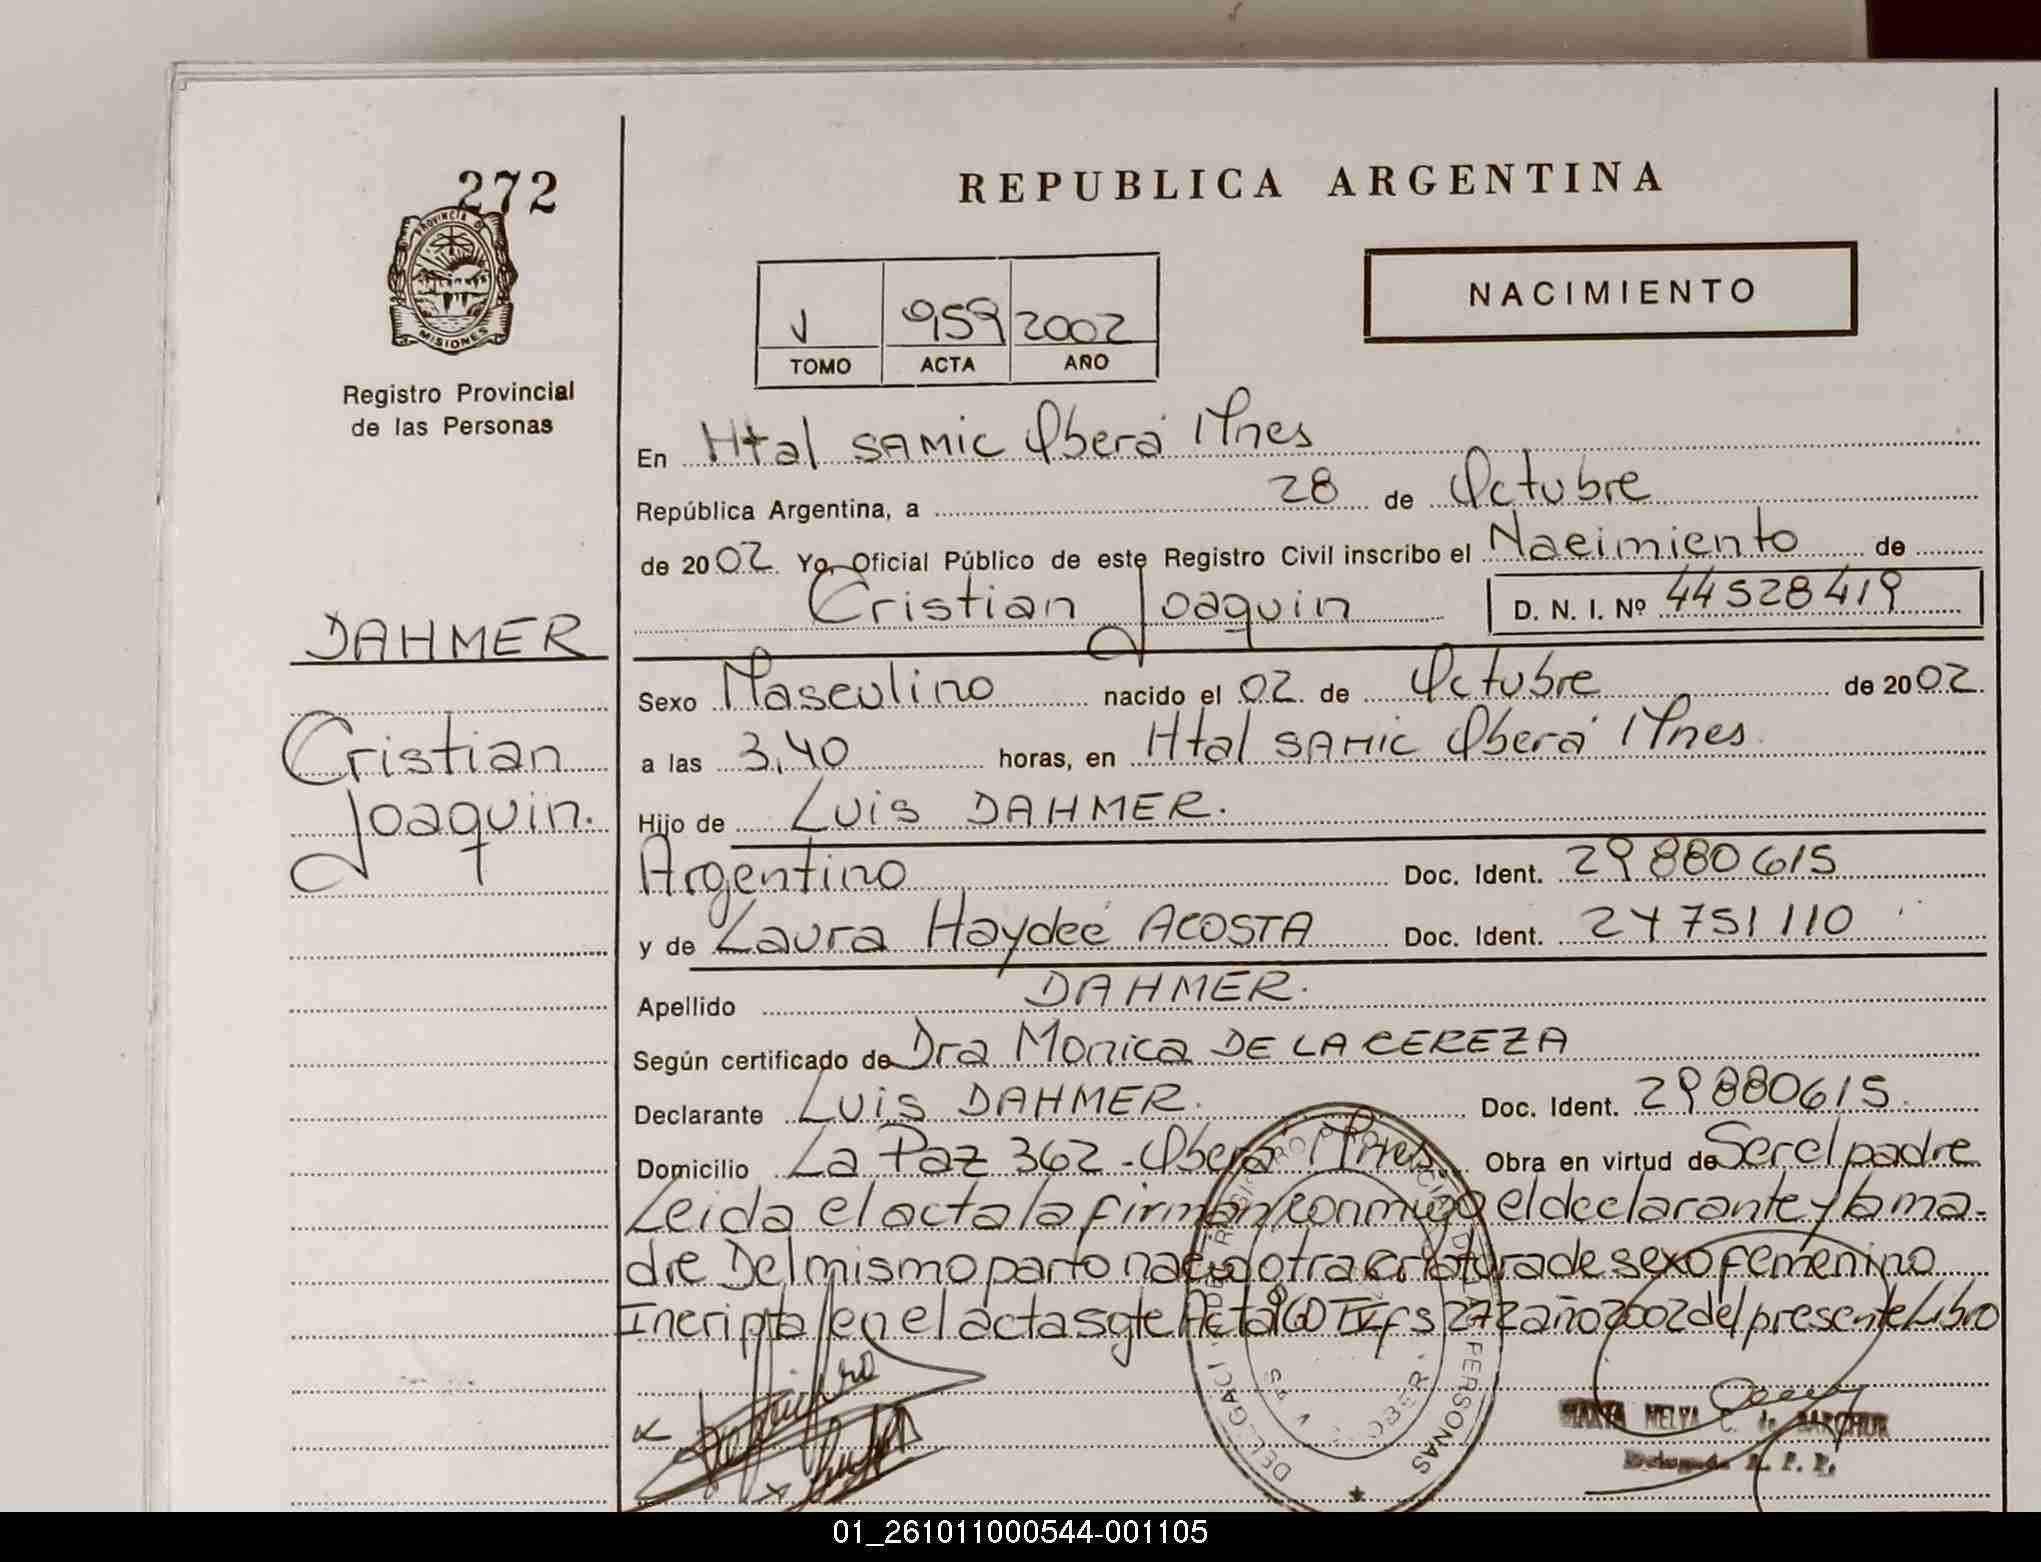 272
REPUBLICA ARGENTINA
PROVINCIA DE
MISIONES
Registro Provincial
de las Personas
NACIMIENTO
V 959 2002
TOMO ACTA AÑO
En Htal SAMIC Oberá Mnes
República Argentina, a 28 de Octubre
de 2002 Yo, Oficial Público de este Registro Civil inscribo el Nacimiento de
Cristian Joaquin D. N. I. Nº 44528419
DAHMER
Cristian
Joaquin.
Sexo Masculino nacido el 02 de Octubre de 2002
a las 3,40 horas, en Htal SAMIC Oberá Mnes.
Hijo de Luis DAHMER.
Argentino Doc. Ident. 29880615
y de Laura Haydeé ACOSTA Doc. Ident. 24751110
Apellido DAHMER.
Según certificado de Dra Monica DE LA CEREZA
Declarante Luis DAHMER. Doc. Ident. 29880615.
Domicilio La Paz 362 - Oberá Mnes. Obra en virtud de Ser el padre
Leida el acta la firman conmigo el declarante y la ma-
dre Del mismo parto nacio otra criatura de sexo femenino
Incripta en el acta sgte Acta 960 fs 272 año 2002 del presente Libro
PERSONAS
de BARCHUK
R. P. P.
01_261011000544-001105